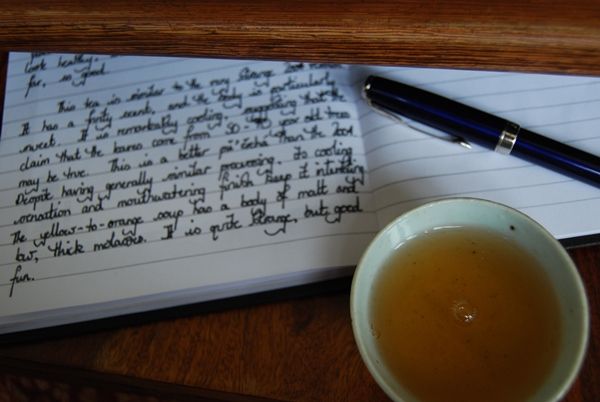 look healthy.
far, so good.
This tea is similar to the very strange
It has a fruity scent, and the body is particularly
sweet. It is remarkably cooling, suggesting that the
claim that the leaves come from 30-40 year old trees
may be true. This is a better pu'ercha than the 2001
Despite having generally similar processing. Its cooling
sensation and mouthwatering finish keep it interesting
The yellow-to-orange soup has a body of malt and
low, thick molasses. It is quite strange, but good
fun.